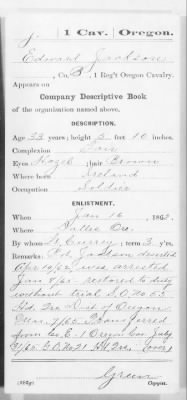 J. 1 Cav. Oregon.
Edward Jackson
Co. B, 1 Reg't Oregon Cavalry.
Appears on
Company Descriptive Book
of the organization named above.
DESCRIPTION.
Age 33 years; height 5 feet 10 inches.
Complexion
Eyes Hazel; hair Brown
Where born Ireland
Occupation Soldier
ENLISTMENT.
When Jan 16, 186
Where Dallas Ore.
By whom Lt. Currey; term 3 y'rs.
Remarks: deserted
was arrested
Jan restored to duty
without trial S.O. No
Hd. Qrs. Dist of Oregon
/65 Transferred
from Co. E. 1 Oregon Cav July
/65 No 21 (over)
Green
Copyist.